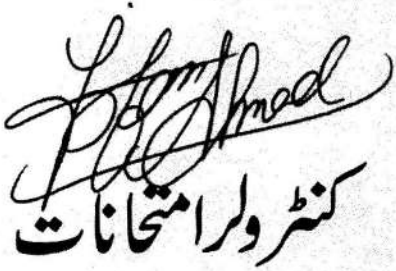 Ahmad
کنٹرولر امتحانات